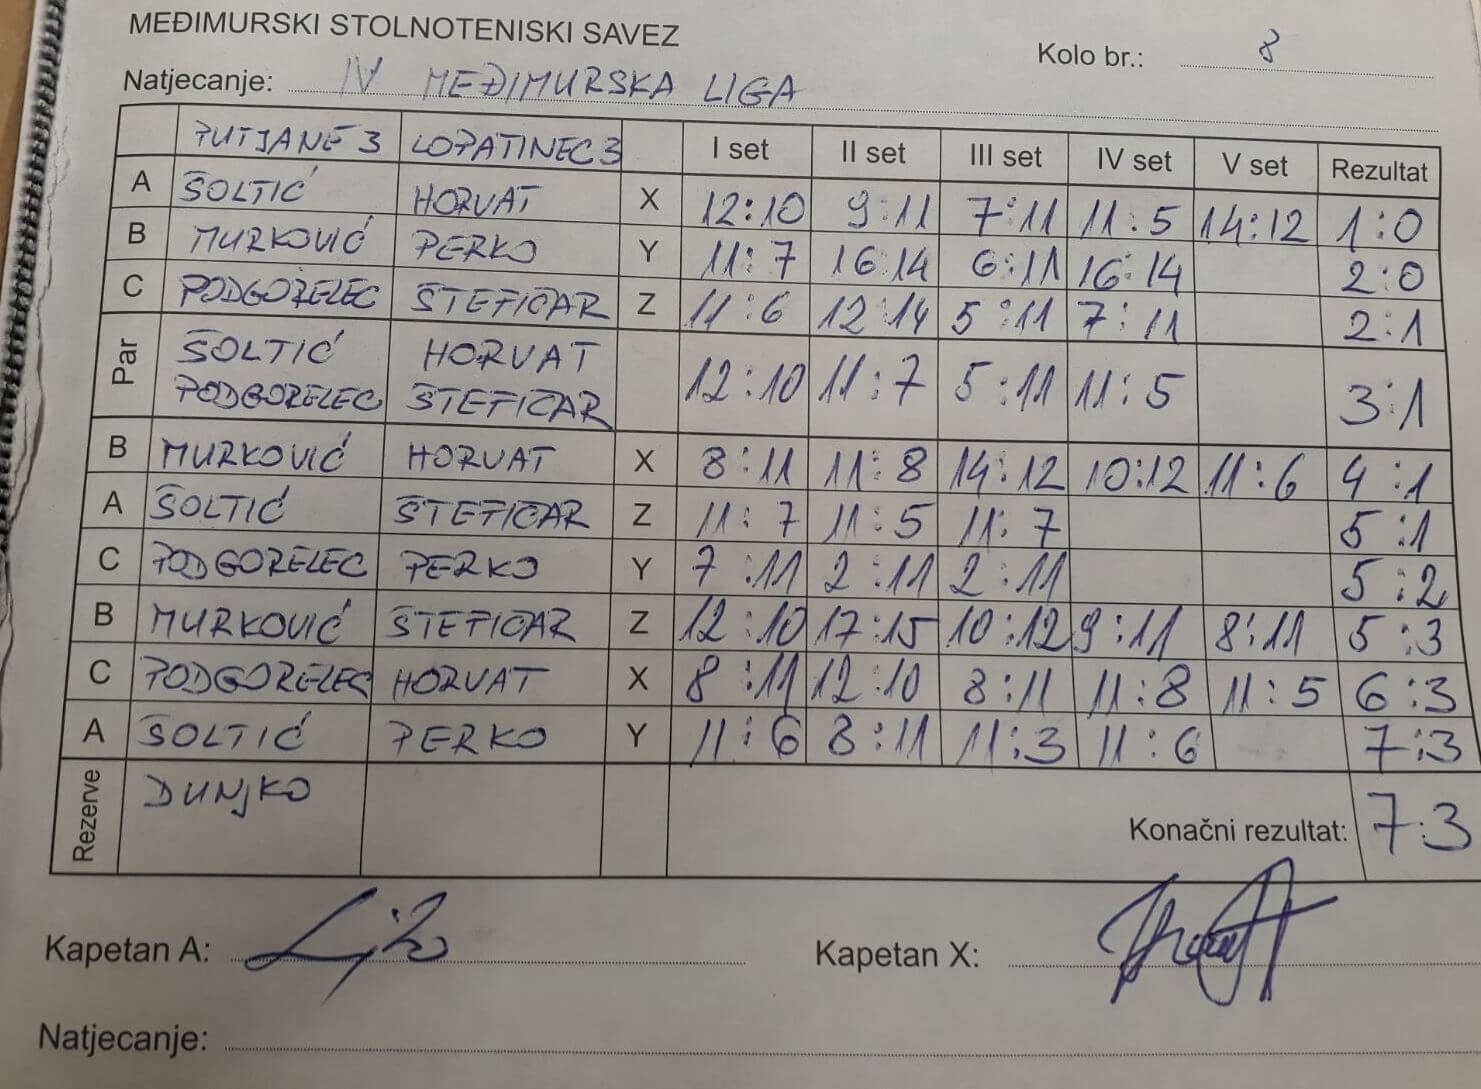 MEĐIMURSKI STOLNOTENISKI SAVEZ
Kolo br.: 8
Natjecanje: IV MEĐIMURSKA LIGA
PUTJANE 3 LOPATINEC 3 I set II set III set IV set V set Rezultat
A ŠOLTIĆ HORVAT X 12:10 9:11 7:11 11:5 14:12 1:0
B MURKOVIĆ PERKO Y 11:7 16:14 6:11 16:14 2:0
C PODGORELEC ŠTEFIČAR Z 11:6 12:14 5:11 7:11 2:1
Par ŠOLTIĆ HORVAT
PODGORELEC ŠTEFIČAR 12:10 11:7 5:11 11:5 3:1
B MURKOVIĆ HORVAT X 8:11 11:8 14:12 10:12 11:6 4:1
A ŠOLTIĆ ŠTEFIČAR Z 11:7 11:5 11:7 5:1
C PODGORELEC PERKO Y 7:11 2:11 2:11 5:2
B MURKOVIĆ ŠTEFIČAR Z 12:10 17:15 10:12 9:11 8:11 5:3
C PODGORELEC HORVAT X 8:11 12:10 8:11 11:8 11:5 6:3
A ŠOLTIĆ PERKO Y 11:6 8:11 11:3 11:6 7:3
Rezerve DUNJKO
Konačni rezultat: 7:3
Kapetan A:
Kapetan X:
Natjecanje: